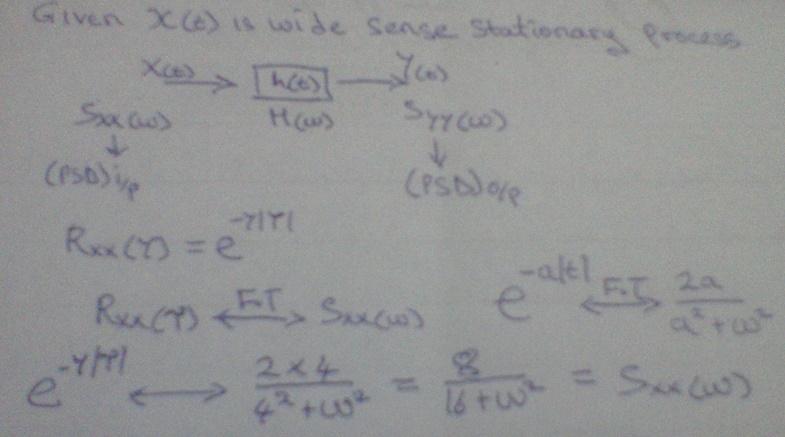 Given X(t) is wide sense stationary process
X(t) → h(t) → Y(t)
Sxx(ω) H(ω) SYY(ω)
↓ ↓
(PSD)i/p (PSD)o/p
Rxx(τ) = e^-4|τ|
Rxx(τ) ←F.T→ Sxx(ω) e^-a|t| ←F.T→ 2a/(a²+ω²)
e^-4|τ| ←→ 2×4/(4²+ω²) = 8/(16+ω²) = Sxx(ω)